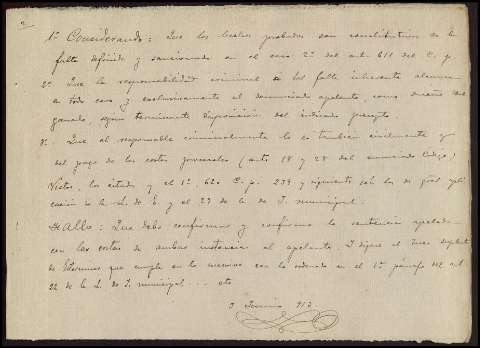 1º Considerando: Que los hechos probados son constitutivos de la
falta definida y sancionada en el caso 2º del art 611 del C. p.
2º Que la responsabilidad criminal de tal falta inherente alcanza
a todo caso y exclusivamente al denunciado apelante, como dueño del
ganado, según terminante disposición del indicado precepto.
3º Que al responsable criminalmente lo es también civilmente y
del pago de las costas procesales (arts 18 y 28 del enunciado Código)
Vistos, los citados y el 1º, 620 C. p. 239 y siguientes de gral apli
cación de la L. de E. y el 29 de la de J. municipal.
Fallo: Que debo confirmar y confirmo la sentencia apelada
con las costas de ambas instancias al apelante. Y dígase al Juez suplente
de que cumpla en lo sucesivo con lo ordenado en el 1º párrafo del art
22 de la L. de J. municipal... etc
Junio 913